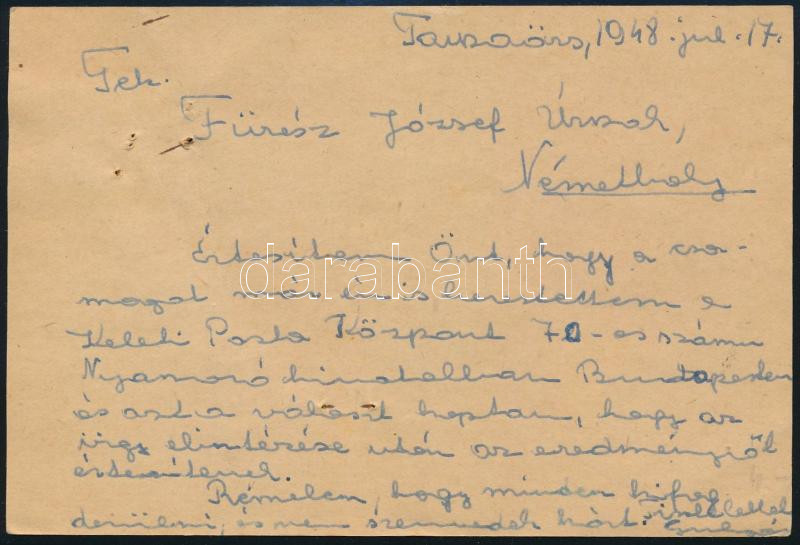 1948. jul. 17.
Tek.
Fürész József Úrnak,
Némethely
Értesítem Önt, hogy a cso-
magot már én is kerestettem a
Keleti Posta Központ 70-es számu
Nyomozó hivatalban Budapesten
és azt a választ kaptam, hogy az
ügy elintézése után az eredményről
értesítenek.
Rémélem, hogy minden ki fog
derülni, és nem szenvedek kárt. Tisztelettel
darabanth